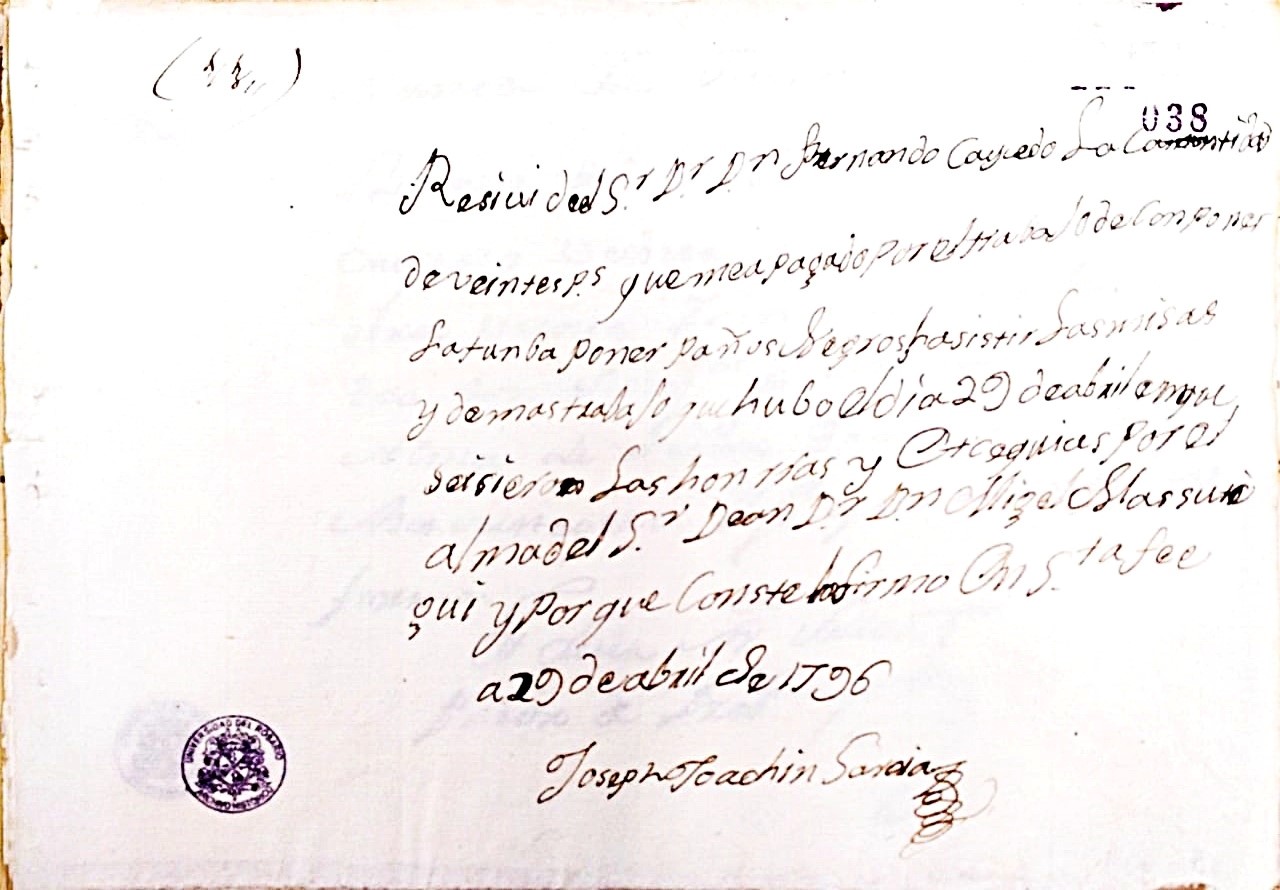 038
Resiui del S.r D.r D.n Fernando Caycedo La Cantidad
de veintesp.s que mea pagado por el trabajo de Conponer
La tunba poner paños Negros hasistir Las misas
y demas trabajo que hubo el dia 29 de abril en que
seisieron Las honrras y Excequias por el
alma del S.r Dean D.r D.n Migel Massus
gui y porque Conste lo firmo En S.ta fee
a 29 de abril de 1796
Joseph Joachin Garcia
UNIVERSIDAD DEL ROSARIO
ARCHIVO HISTORICO